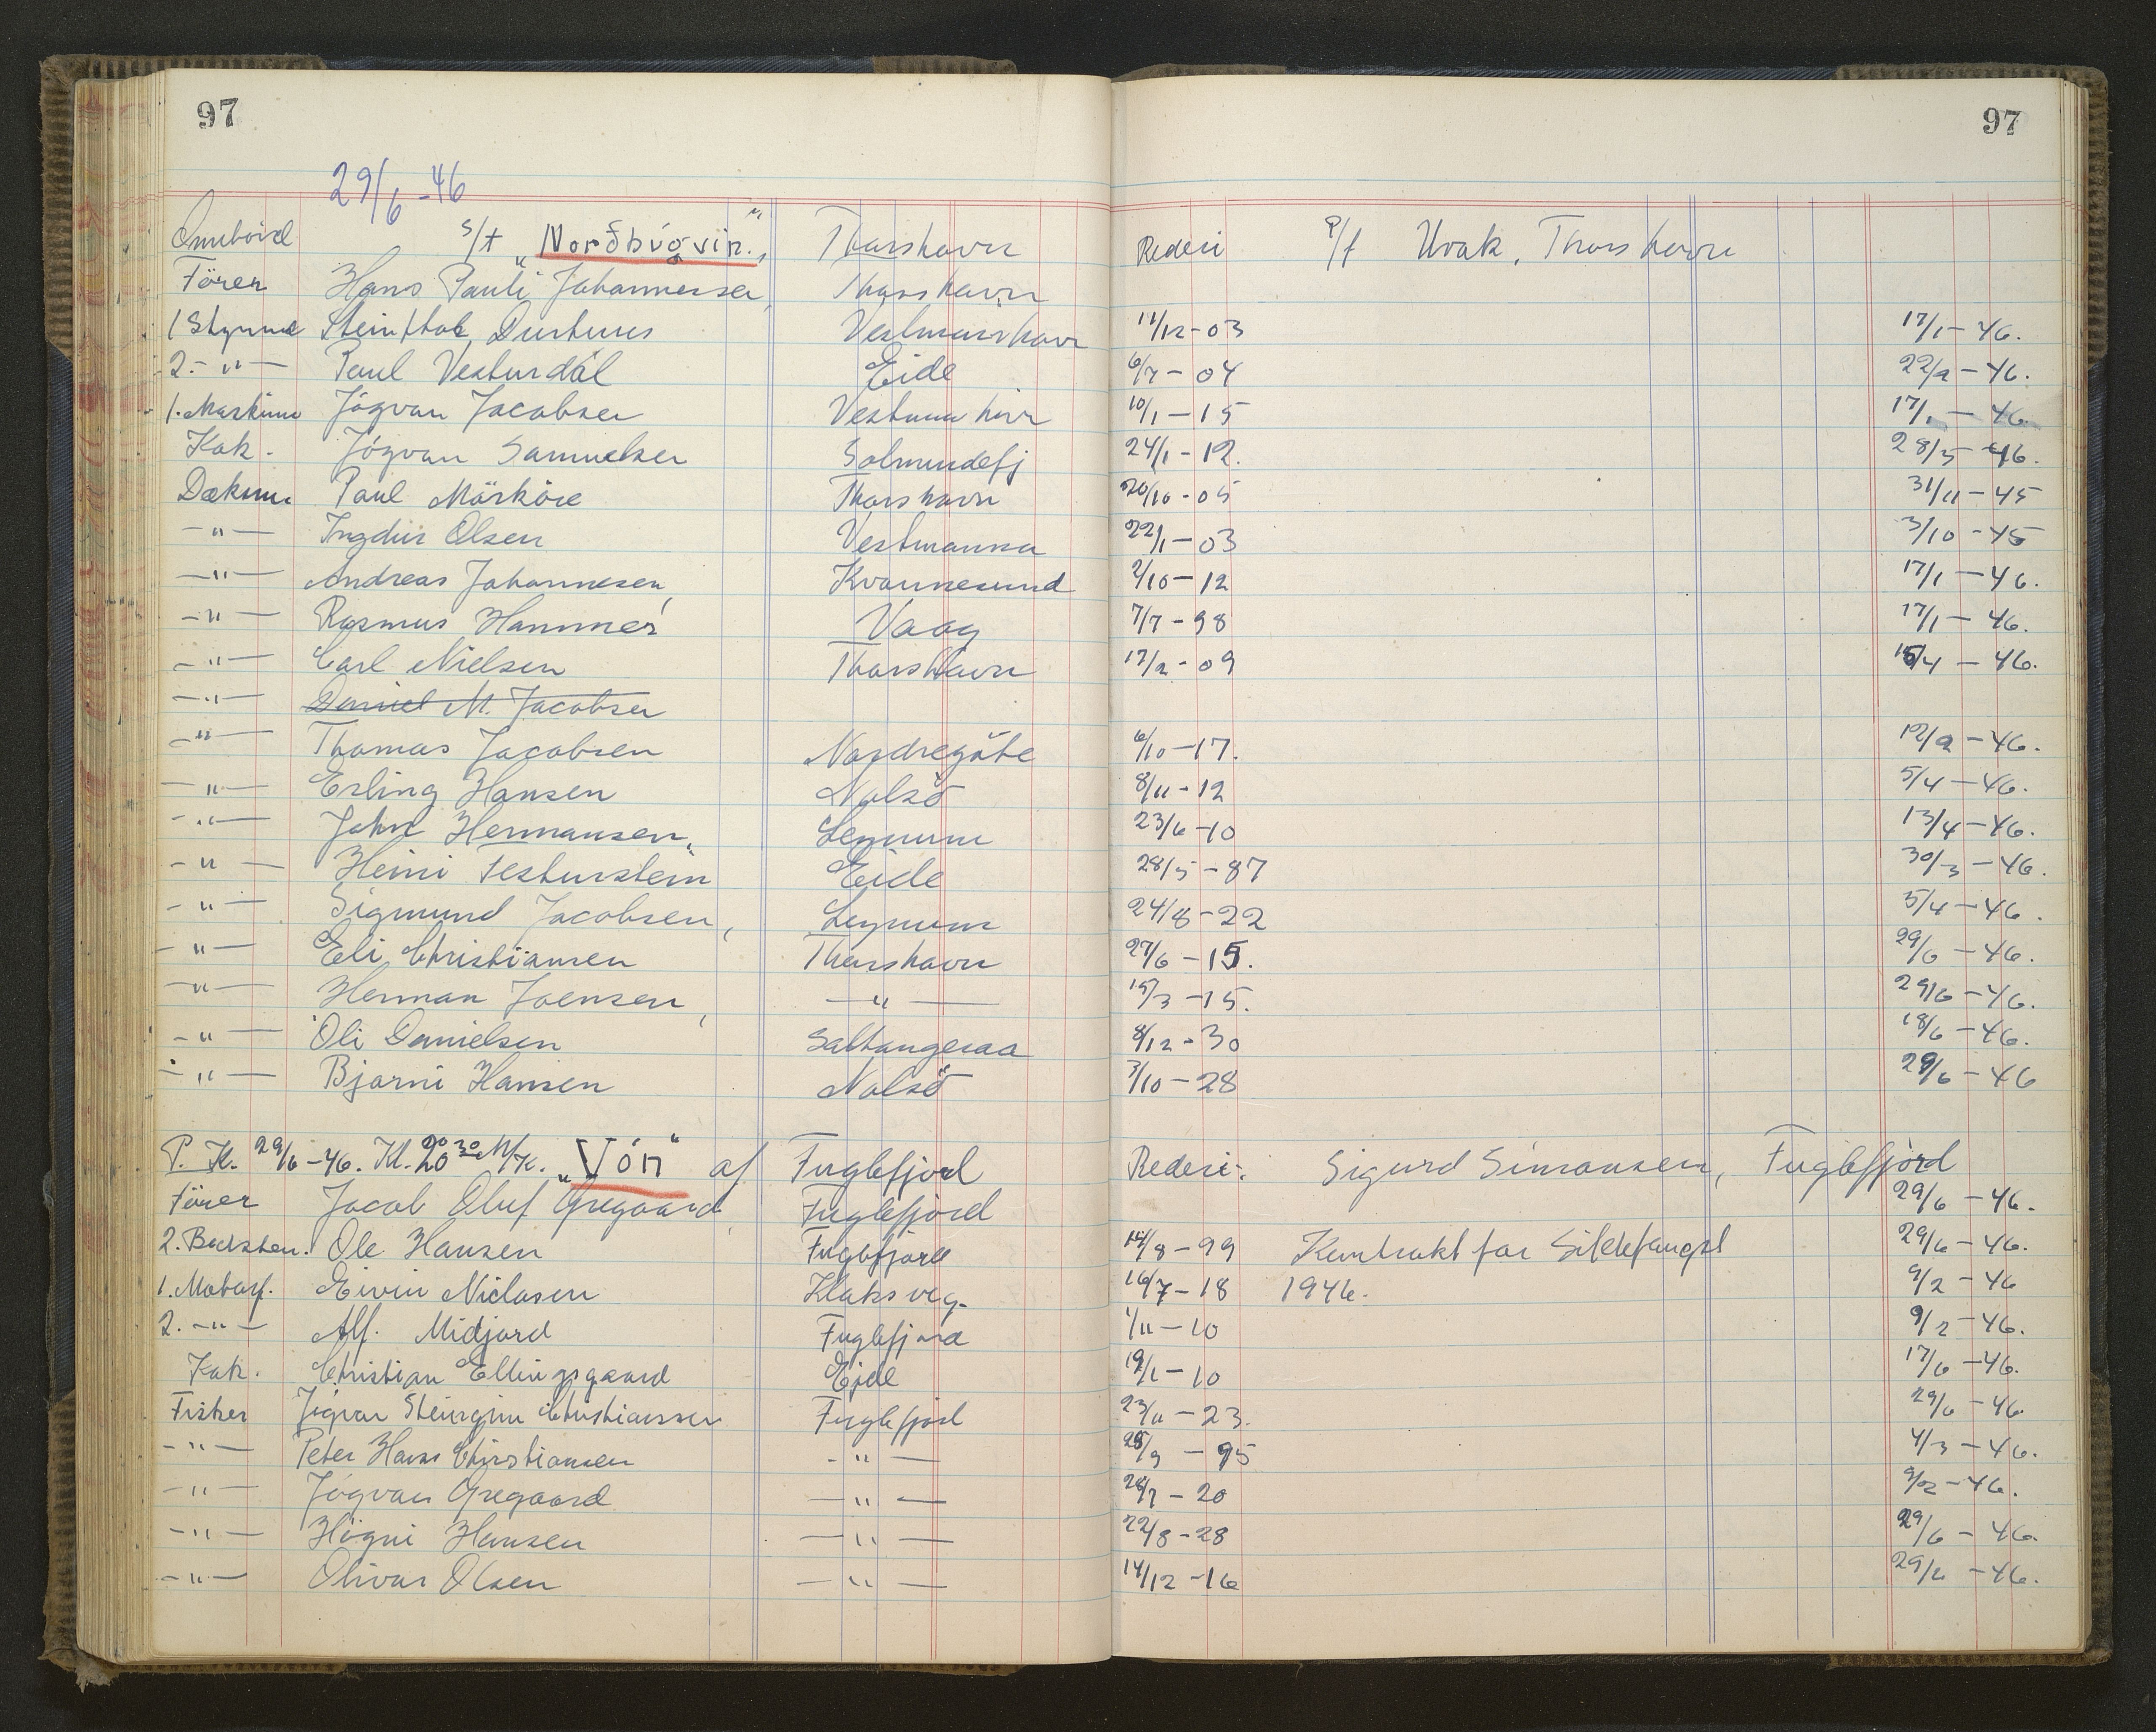 97 97
29/6-46
Ommbord s/t „Norðbúgvin." Thorshavn Rederi P/f Uvak, Thorshavn
Förer Hans Pauli Johannesen, Thorshavn
1 Styrmd Durhuus Vestmanhavn 11/12-03 17/1-46.
2. -"- Poul Vesturdál Eide 6/7-04 22/2-46.
1. Maskinm Jógvan Jacobsen 10/1-15 17/1-46
Kok. Jógvan Samuelsen Solmundefj 24/1-12. 28/3-46.
Dækmm Poul Mörköre Thorshavn 20/10-05 31/11-45
-"- Ingdur Olsen Vestmanna 22/1-03 3/10-45
-"- Andreas Johannesen, Kvannesund 2/10-12 17/1-46.
-"- Rasmus Hammer Vaag 7/7-98 17/1-46.
-"- Carl Nielsen Thorshavn 17/2-09 15/4-46.
-"- Daniel M. Jacobsen
-"- Thomas Jacobsen Nordregöte 6/10-17. 12/2-46.
-"- Erling Hansen Nolsö 8/11-12 5/4-46.
-"- John Hermansen, Leynum 23/6-10 13/4-46.
-"- Heini Vesturstein Eide 28/5-87 30/3-46.
-"- Sigmund Jacobsen, Leynum 24/8-22 5/4-46.
-"- Eli Christiansen Thorshavn 27/6-15. 29/6-46.
-"- Herman Joensen, -"- 15/3-15. 29/6-46.
-"- Óli Danielsen Saltangeraa 8/12-30 18/6-46.
-"- Bjarni Hansen Nolsö 3/10-28 29/6-46
P. Kl. 29/6-46. Kl. 20 30 M/K. „Vón" af Fuglefjord Rederi: Sigurd Simonsen, Fuglefjord
Förer Jacob Oluf Gregaard, Fuglefjord 29/6-46.
2. Bedsten. Ole Hansen Fuglefjord 14/8-99 Kontrakt for Sildefangst 29/6-46.
1. Motorf. Eivin Niclasen Klaksvig. 16/7-18 1946. 9/2-46
2. -"- Alf. Midjord Fuglefjord 1/11-10 9/2-46.
Kok. Christian Ellingsgaard Ejde 19/1-10 17/6-46.
Fisker Jógvan Steingrim Christiansen Fuglefjord 23/11-23. 29/6-46.
-"- Peter Hans Christiansen -"- 28/9-95 4/3-46.
-"- Jógvan Gregaard -"- 28/7-20 9/2-46.
-"- Högni Hansen -"- 22/8-28 29/6-46.
-"- Olivar Olsen -"- 14/12-16 29/6-46.